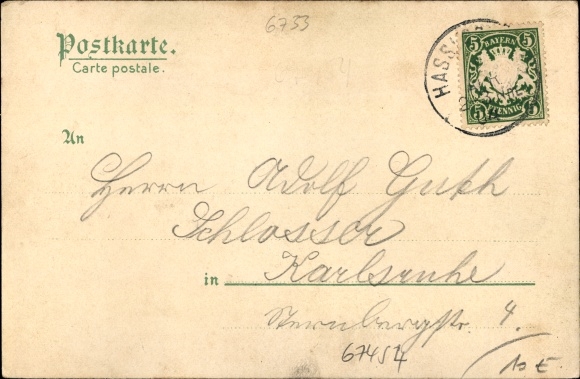 6733
Postkarte.
Carte postale.
HASS
5 BAYERN 5
5 PFENNIG 5
An
Herrn Adolf Guth
Schlosser
in Karlsruhe
Sternbergstr. 4.
67454
10 €.